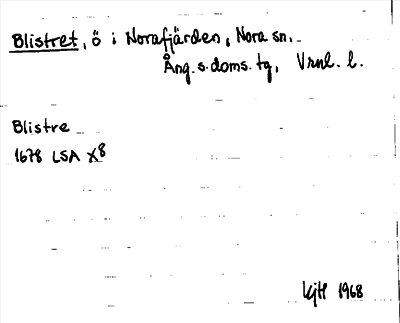 Blistret, ö i Norafjärden, Nora sn.
Ång. s. doms. tg, Vrnl. l.
Blistre
1678 LSA X8
1968